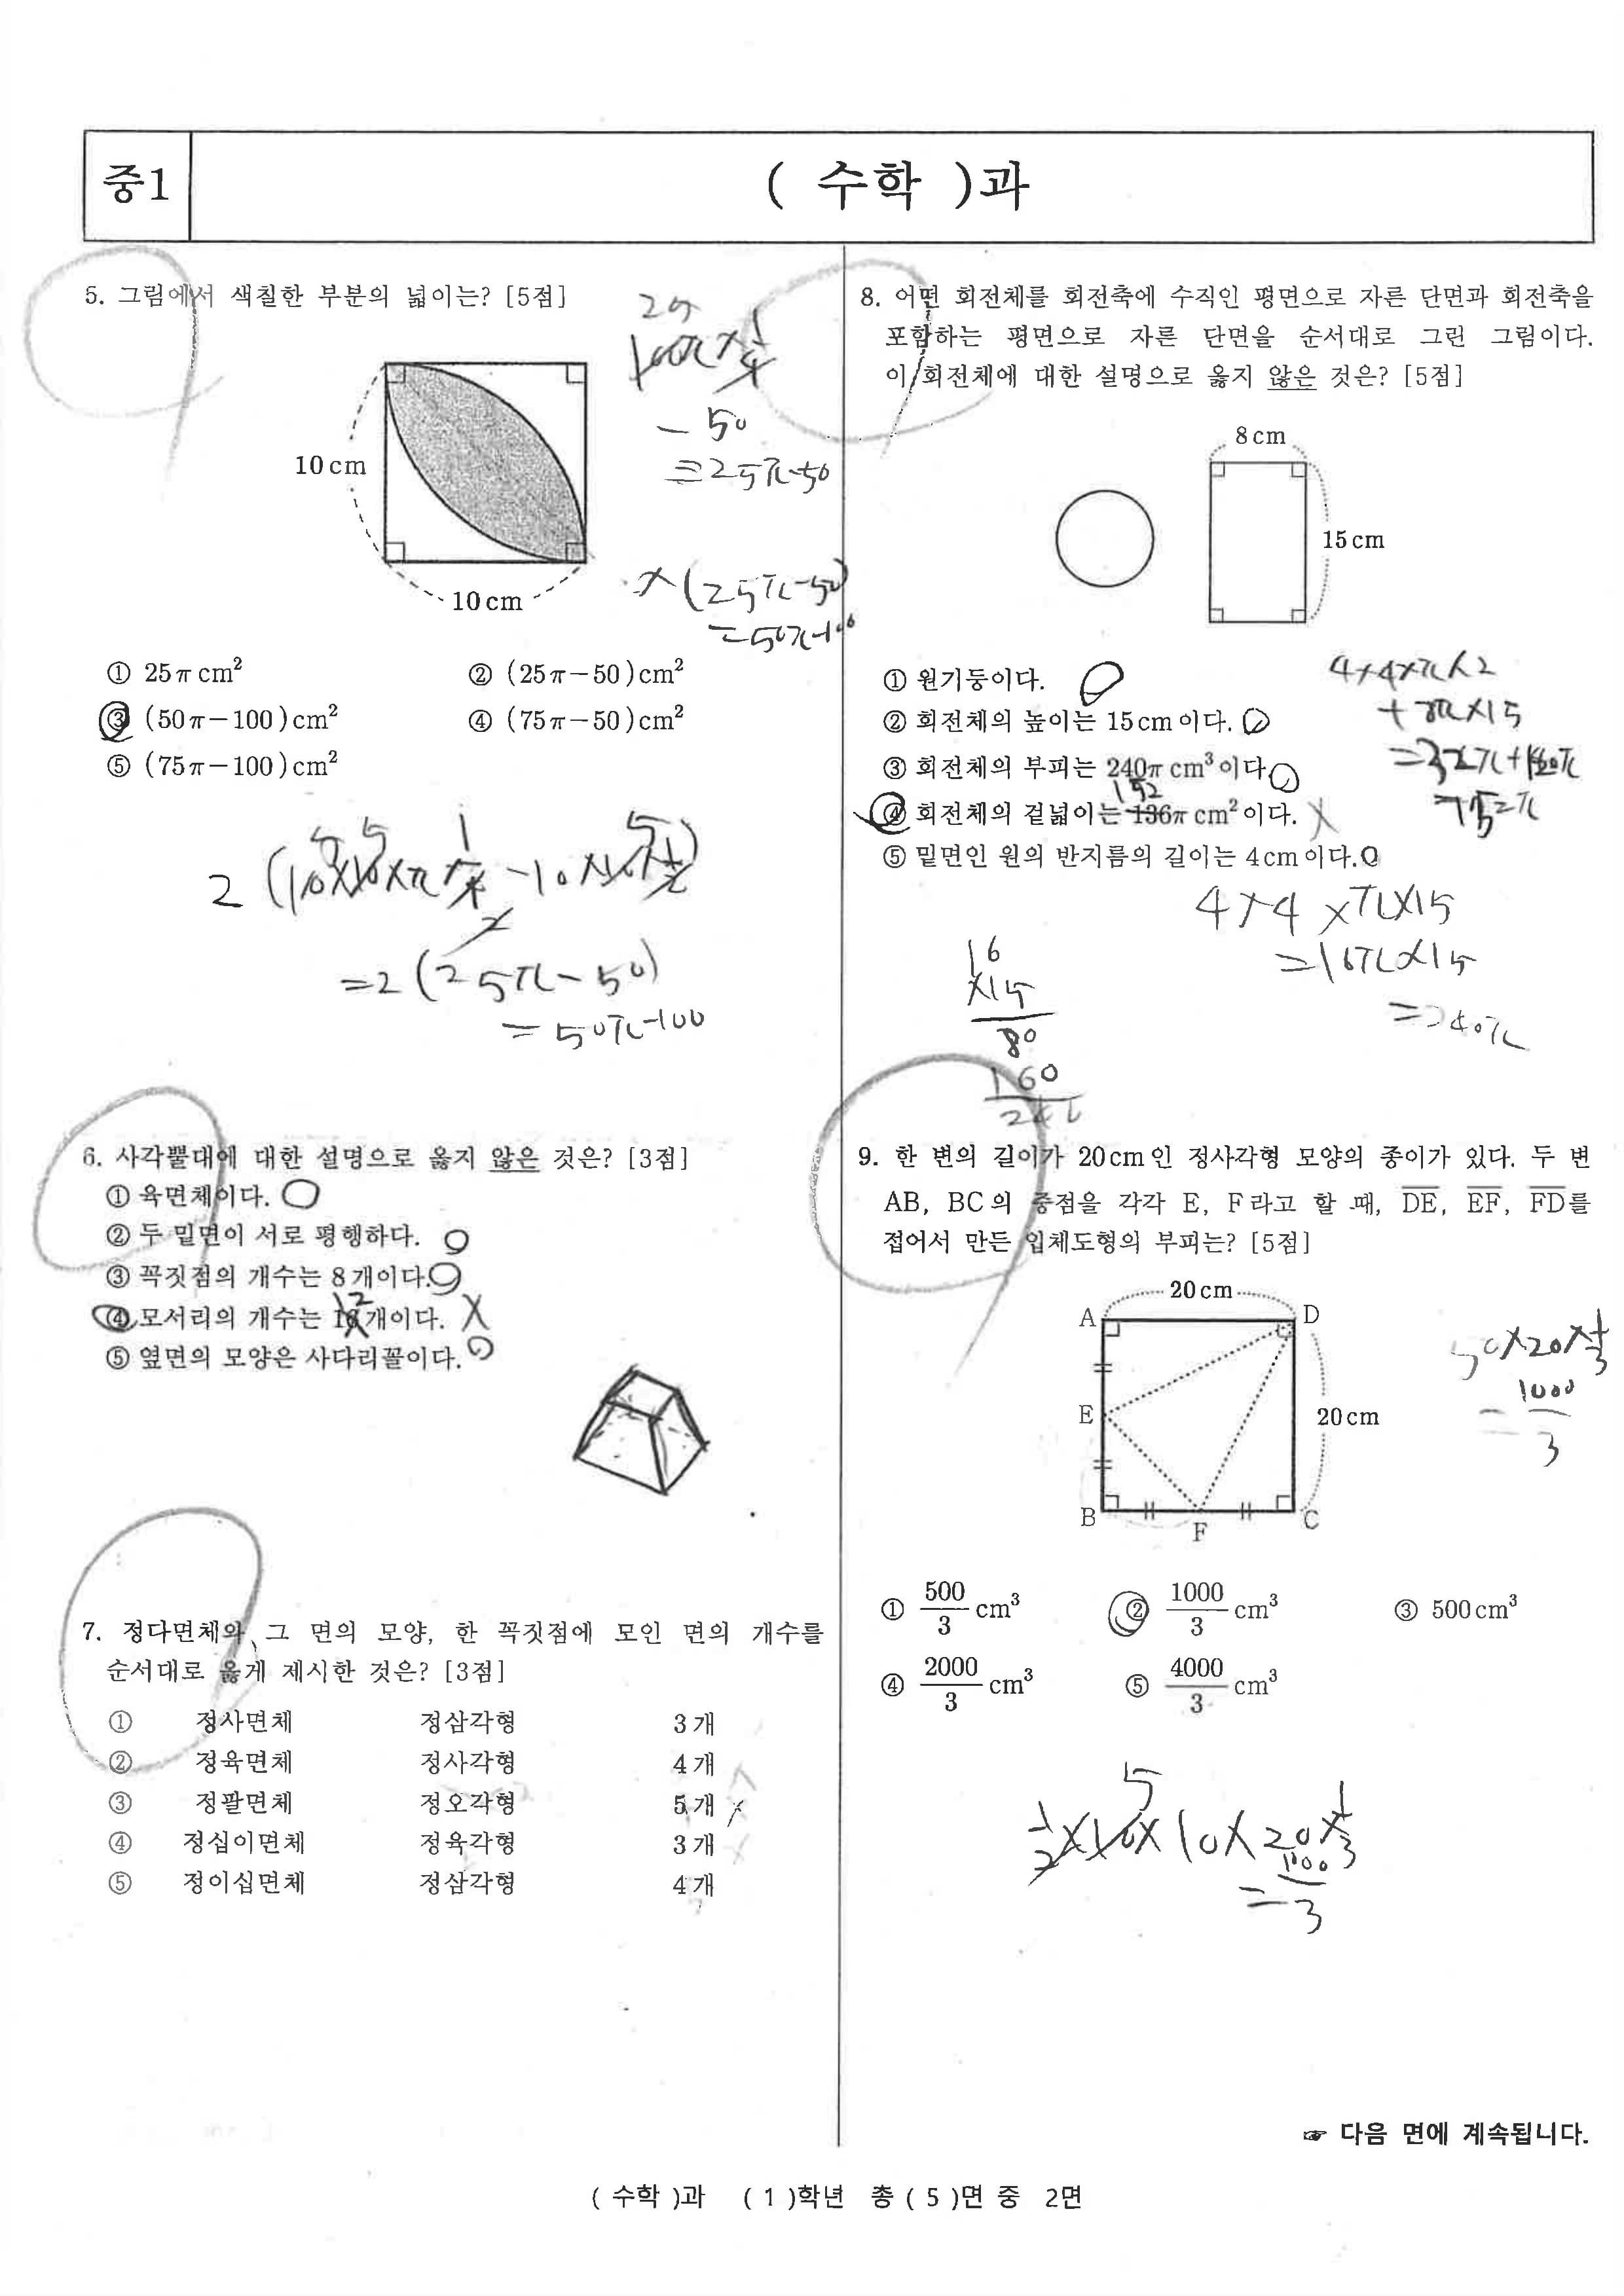 중1
( 수학 )과
5. 그림에서 색칠한 부분의 넓이는? [5점]
10cm
10cm
① 25π cm²
② (25π-50)cm²
③ (50π-100)cm²
④ (75π-50)cm²
⑤ (75π-100)cm²
-50
=25π-50
×(25π-50)
=50π-100
=2(25π-50)
=50π-100
6. 사각뿔대에 대한 설명으로 옳지 않은 것은? [3점]
① 육면체이다.
② 두 밑면이 서로 평행하다.
③ 꼭짓점의 개수는 8개이다.
④ 모서리의 개수는 12개이다. X
⑤ 옆면의 모양은 사다리꼴이다.
7. 정다면체와 그 면의 모양, 한 꼭짓점에 모인 면의 개수를
순서대로 옳게 제시한 것은? [3점]
① 정사면체 정삼각형 3개
② 정육면체 정사각형 4개
③ 정팔면체 정오각형 5개
④ 정십이면체 정육각형 3개
⑤ 정이십면체 정삼각형 4개
8. 어떤 회전체를 회전축에 수직인 평면으로 자른 단면과 회전축을
포함하는 평면으로 자른 단면을 순서대로 그린 그림이다.
이 회전체에 대한 설명으로 옳지 않은 것은? [5점]
8cm
15cm
① 원기둥이다.
② 회전체의 높이는 15cm이다.
③ 회전체의 부피는 240π cm³이다.
152
④ 회전체의 겉넓이는 136π cm²이다. X
⑤ 밑면인 원의 반지름의 길이는 4cm이다.
4×4×π×2
+8π×15
=32π+120π
=152π
4×4×π×15
=16π×15
=240π
16
×15
80
160
240
9. 한 변의 길이가 20cm인 정사각형 모양의 종이가 있다. 두 변
AB, BC의 중점을 각각 E, F라고 할 때, DE, EF, FD를
접어서 만든 입체도형의 부피는? [5점]
20cm
A D
E 20cm
B F C
50×20×1/3
=1000/3
① 500/3 cm³
② 1000/3 cm³
③ 500cm³
④ 2000/3 cm³
⑤ 4000/3 cm³
1/2×10×10×20×1/3
=1000/3
☞ 다음 면에 계속됩니다.
( 수학 )과 ( 1 )학년 총 ( 5 )면 중 2면